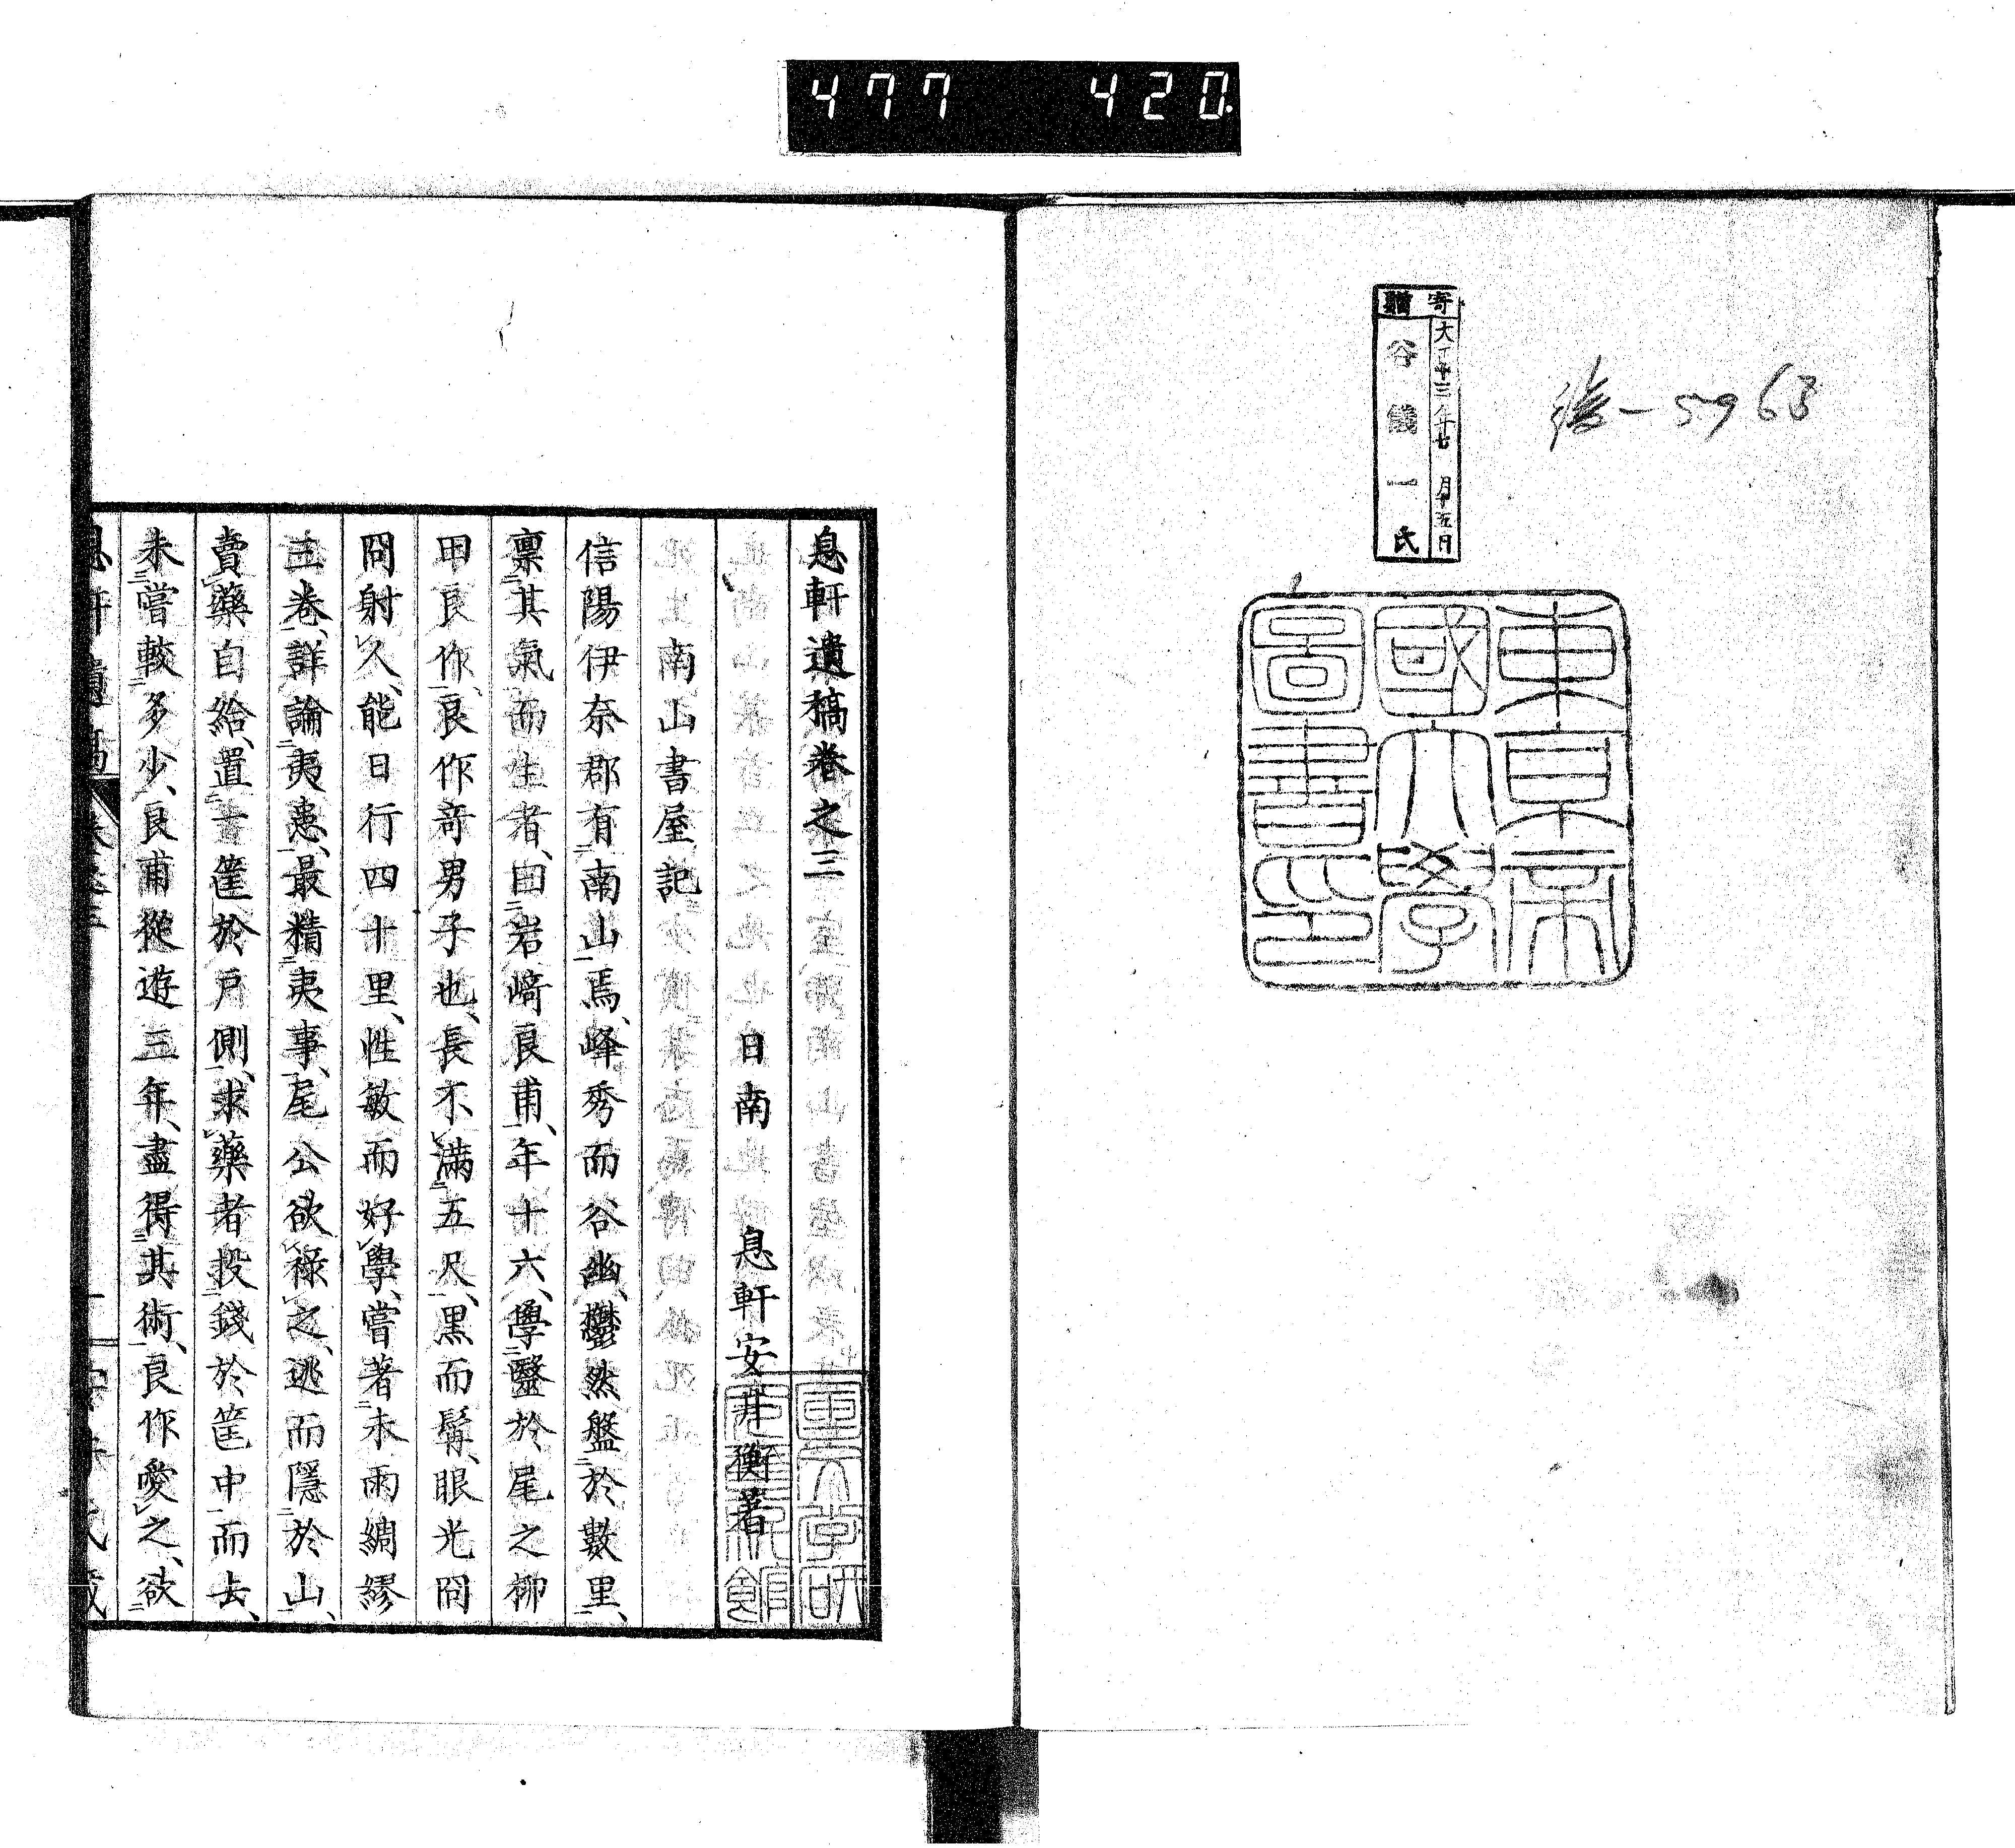 477 420
寄贈
大正十三年七月十五日
谷儀一氏
5968
東京帝
國大學
圖書印
息軒遺稿卷之三
日南 息軒安井衡著
南山書屋記
信陽伊奈郡有南山焉、峰秀而谷幽、鬱然盤於數里、
禀其氣而生者、曰岩﨑良甫、年十六、學醫於尾之柳
田良作、良作奇男子也、長不滿五尺、黑而髯、眼光冏
冏射久、能日行四十里、性敏而好學、嘗著未雨綢繆
三卷、詳論夷患、最精夷事、尾公欲祿之、逃而隱於山、
賣藥自給、置一筐於戶側、求藥者投錢於筐中而去、
未嘗較多少、良甫從遊三年、盡得其術、良作愛之、欲